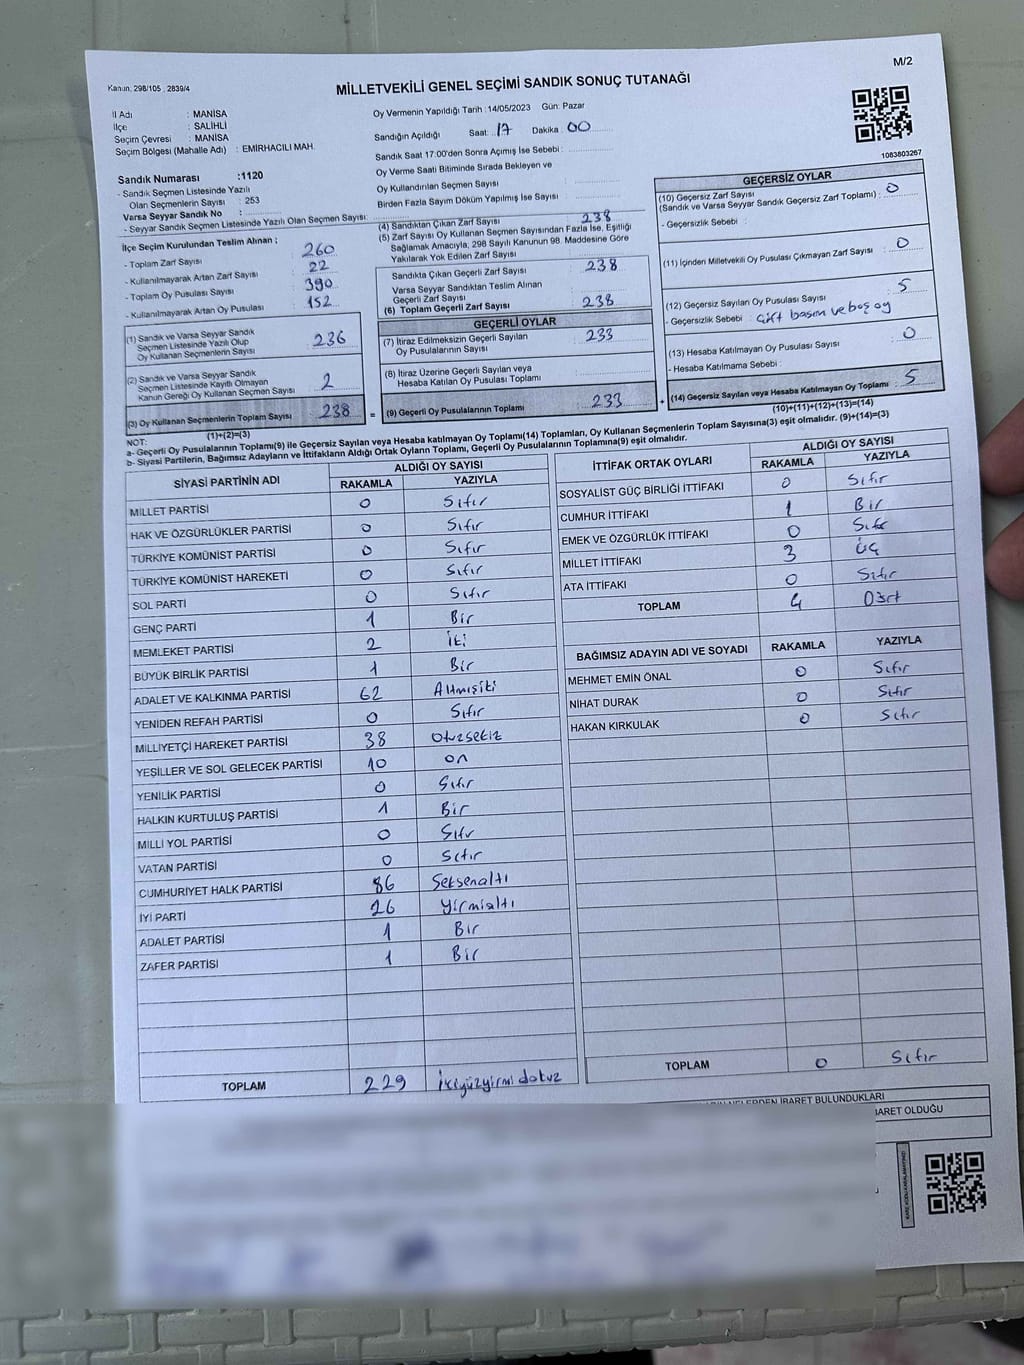 M/2
Kanun, 298/105 , 2839/4
MİLLETVEKİLİ GENEL SEÇİMİ SANDIK SONUÇ TUTANAĞI
İl Adı : MANİSA
İlçe : SALİHLİ
Seçim Çevresi : MANİSA
Seçim Bölgesi (Mahalle Adı) : EMİRHACILI MAH.
Sandık Numarası :1120
- Sandık Seçmen Listesinde Yazılı
Olan Seçmenlerin Sayısı : 253
Varsa Seyyar Sandık No :
- Seyyar Sandık Seçmen Listesinde Yazılı Olan Seçmen Sayısı:
Oy Vermenin Yapıldığı Tarih : 14/05/2023 Gün: Pazar
Sandığın Açıldığı Saat: 17 Dakika: 00
Sandık Saat 17:00'den Sonra Açımış İse Sebebi :
Oy Verme Saati Bitiminde Sırada Bekleyen ve
Oy Kullandırılan Seçmen Sayısı :
Birden Fazla Sayım Döküm Yapılmış İse Sayısı :
1083803267
İlçe Seçim Kurulundan Teslim Alınan ;
- Toplam Zarf Sayısı : 260
- Kullanılmayarak Artan Zarf Sayısı : 22
- Toplam Oy Pusulası Sayısı : 390
- Kullanılmayarak Artan Oy Pusulası : 152
(1) Sandık ve Varsa Seyyar Sandık
Seçmen Listesinde Yazılı Olup
Oy Kullanan Seçmenlerin Sayısı : 236
(2) Sandık ve Varsa Seyyar Sandık
Seçmen Listesinde Kayıtlı Olmayan
Kanun Gereği Oy Kullanan Seçmen Sayısı : 2
(3) Oy Kullanan Seçmenlerin Toplam Sayısı : 238 =
(1)+(2)=(3)
(4) Sandıktan Çıkan Zarf Sayısı : 238
(5) Zarf Sayısı Oy Kullanan Seçmen Sayısından Fazla İse, Eşitliği
Sağlamak Amacıyla, 298 Sayılı Kanunun 98. Maddesine Göre
Yakılarak Yok Edilen Zarf Sayısı :
Sandıkta Çıkan Geçerli Zarf Sayısı : 238
Varsa Seyyar Sandıktan Teslim Alınan
Geçerli Zarf Sayısı :
(6) Toplam Geçerli Zarf Sayısı : 238
GEÇERLİ OYLAR
(7) İtiraz Edilmeksizin Geçerli Sayılan
Oy Pusulalarının Sayısı : 233
(8) İtiraz Üzerine Geçerli Sayılan veya
Hesaba Katılan Oy Pusulası Toplamı :
(9) Geçerli Oy Pusulalarının Toplamı : 233 +
GEÇERSİZ OYLAR
(10) Geçersiz Zarf Sayısı
(Sandık ve Varsa Seyyar Sandık Geçersiz Zarf Toplamı) : 0
- Geçersizlik Sebebi :
(11) İçinden Milletvekili Oy Pusulası Çıkmayan Zarf Sayısı : 0
(12) Geçersiz Sayılan Oy Pusulası Sayısı : 5
- Geçersizlik Sebebi : çift basım ve boş oy
(13) Hesaba Katılmayan Oy Pusulası Sayısı : 0
- Hesaba Katılmama Sebebi :
(14) Geçersiz Sayılan veya Hesaba Katılmayan Oy Toplamı : 5
(10)+(11)+(12)+(13)=(14)
NOT:
a- Geçerli Oy Pusulalarının Toplamı(9) ile Geçersiz Sayılan veya Hesaba katılmayan Oy Toplamı(14) Toplamları, Oy Kullanan Seçmenlerin Toplam Sayısına(3) eşit olmalıdır. (9)+(14)=(3)
b- Siyasi Partilerin, Bağımsız Adayların ve İttifakların Aldığı Ortak Oyların Toplamı, Geçerli Oy Pusulalarının Toplamına(9) eşit olmalıdır.
SİYASİ PARTİNİN ADI ALDIĞI OY SAYISI
RAKAMLA YAZIYLA
MİLLET PARTİSİ 0 Sıfır
HAK VE ÖZGÜRLÜKLER PARTİSİ 0 Sıfır
TÜRKİYE KOMÜNİST PARTİSİ 0 Sıfır
TÜRKİYE KOMÜNİST HAREKETİ 0 Sıfır
SOL PARTİ 0 Sıfır
GENÇ PARTİ 1 Bir
MEMLEKET PARTİSİ 2 İki
BÜYÜK BİRLİK PARTİSİ 1 Bir
ADALET VE KALKINMA PARTİSİ 62 Altmışiki
YENİDEN REFAH PARTİSİ 0 Sıfır
MİLLİYETÇİ HAREKET PARTİSİ 38 Otuzsekiz
YEŞİLLER VE SOL GELECEK PARTİSİ 10 on
YENİLİK PARTİSİ 0 Sıfır
HALKIN KURTULUŞ PARTİSİ 1 Bir
MİLLİ YOL PARTİSİ 0 Sıfır
VATAN PARTİSİ 0 Sıfır
CUMHURİYET HALK PARTİSİ 86 Seksenaltı
İYİ PARTİ 26 Yirmialtı
ADALET PARTİSİ 1 Bir
ZAFER PARTİSİ 1 Bir
TOPLAM 229 İkiyüzyirmidokuz
İTTİFAK ORTAK OYLARI ALDIĞI OY SAYISI
RAKAMLA YAZIYLA
SOSYALİST GÜÇ BİRLİĞİ İTTİFAKI 0 Sıfır
CUMHUR İTTİFAKI 1 Bir
EMEK VE ÖZGÜRLÜK İTTİFAKI 0 Sıfır
MİLLET İTTİFAKI 3 üç
ATA İTTİFAKI 0 Sıfır
TOPLAM 4 Dört
BAĞIMSIZ ADAYIN ADI VE SOYADI RAKAMLA YAZIYLA
MEHMET EMİN ÖNAL 0 Sıfır
NİHAT DURAK 0 Sıfır
HAKAN KIRKULAK 0 Sıfır
TOPLAM 0 Sıfır
NELERDEN İBARET BULUNDUKLARI
İBARET OLDUĞU